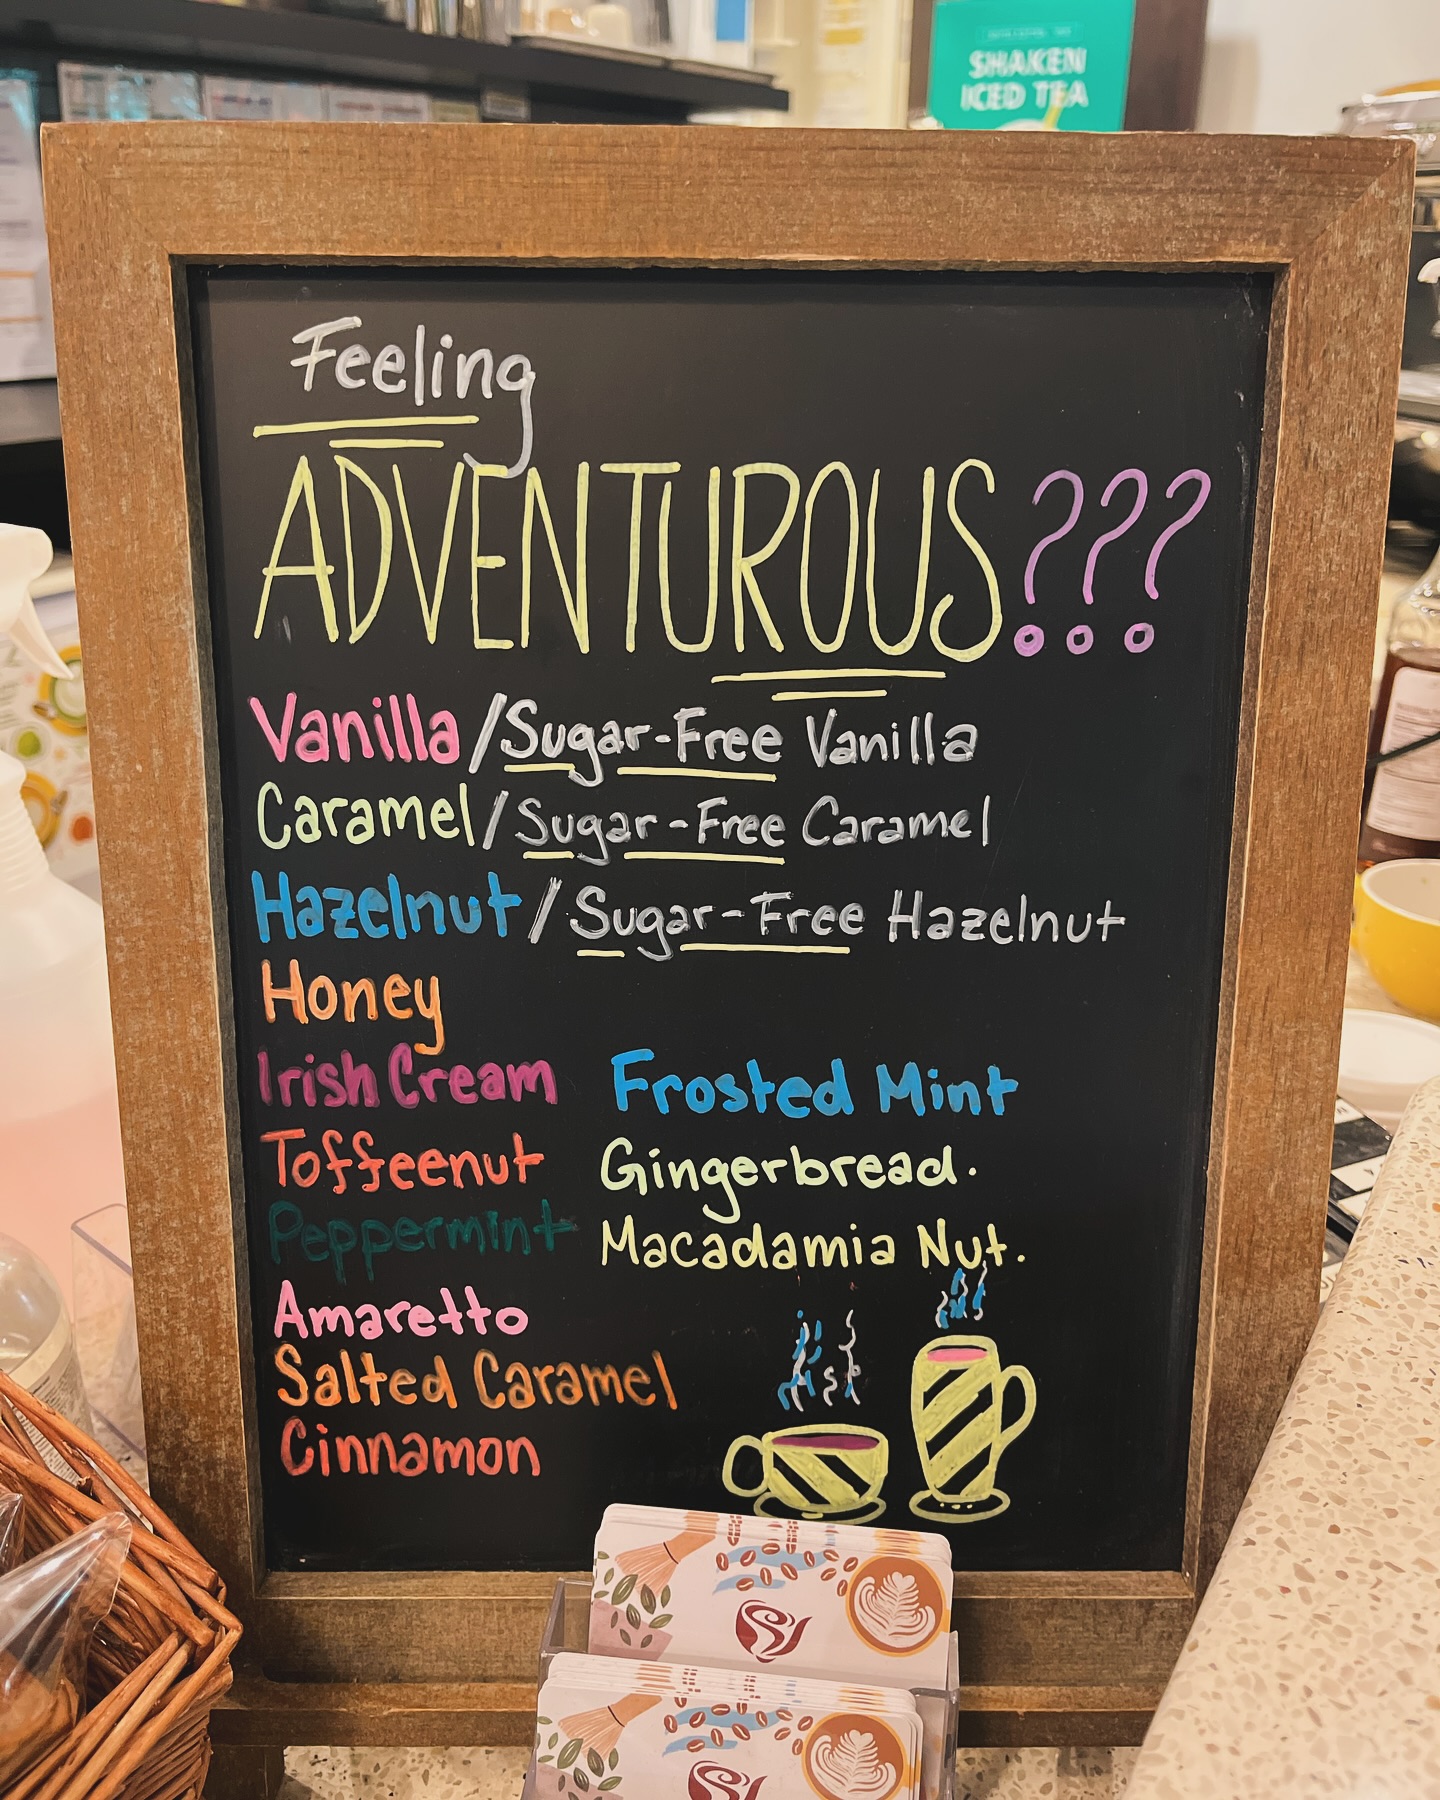 SHAKEN
ICED TEA
Feeling
ADVENTUROUS???
Vanilla/Sugar-Free Vanilla
Caramel/Sugar-Free Caramel
Hazelnut/Sugar-Free Hazelnut
Honey
Irish Cream
Toffeenut
Peppermint
Amaretto
Salted Caramel
Cinnamon
Frosted Mint
Gingerbread.
Macadamia Nut.